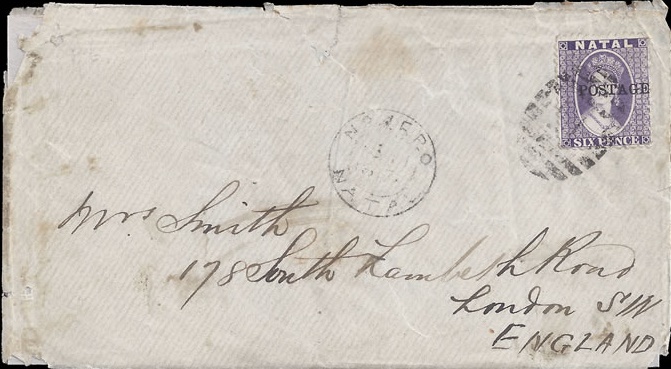 NATAL
POSTAGE
SIXPENCE
NATAL
Mrs Smith
178 South Lambeth Road
London SW
ENGLAND